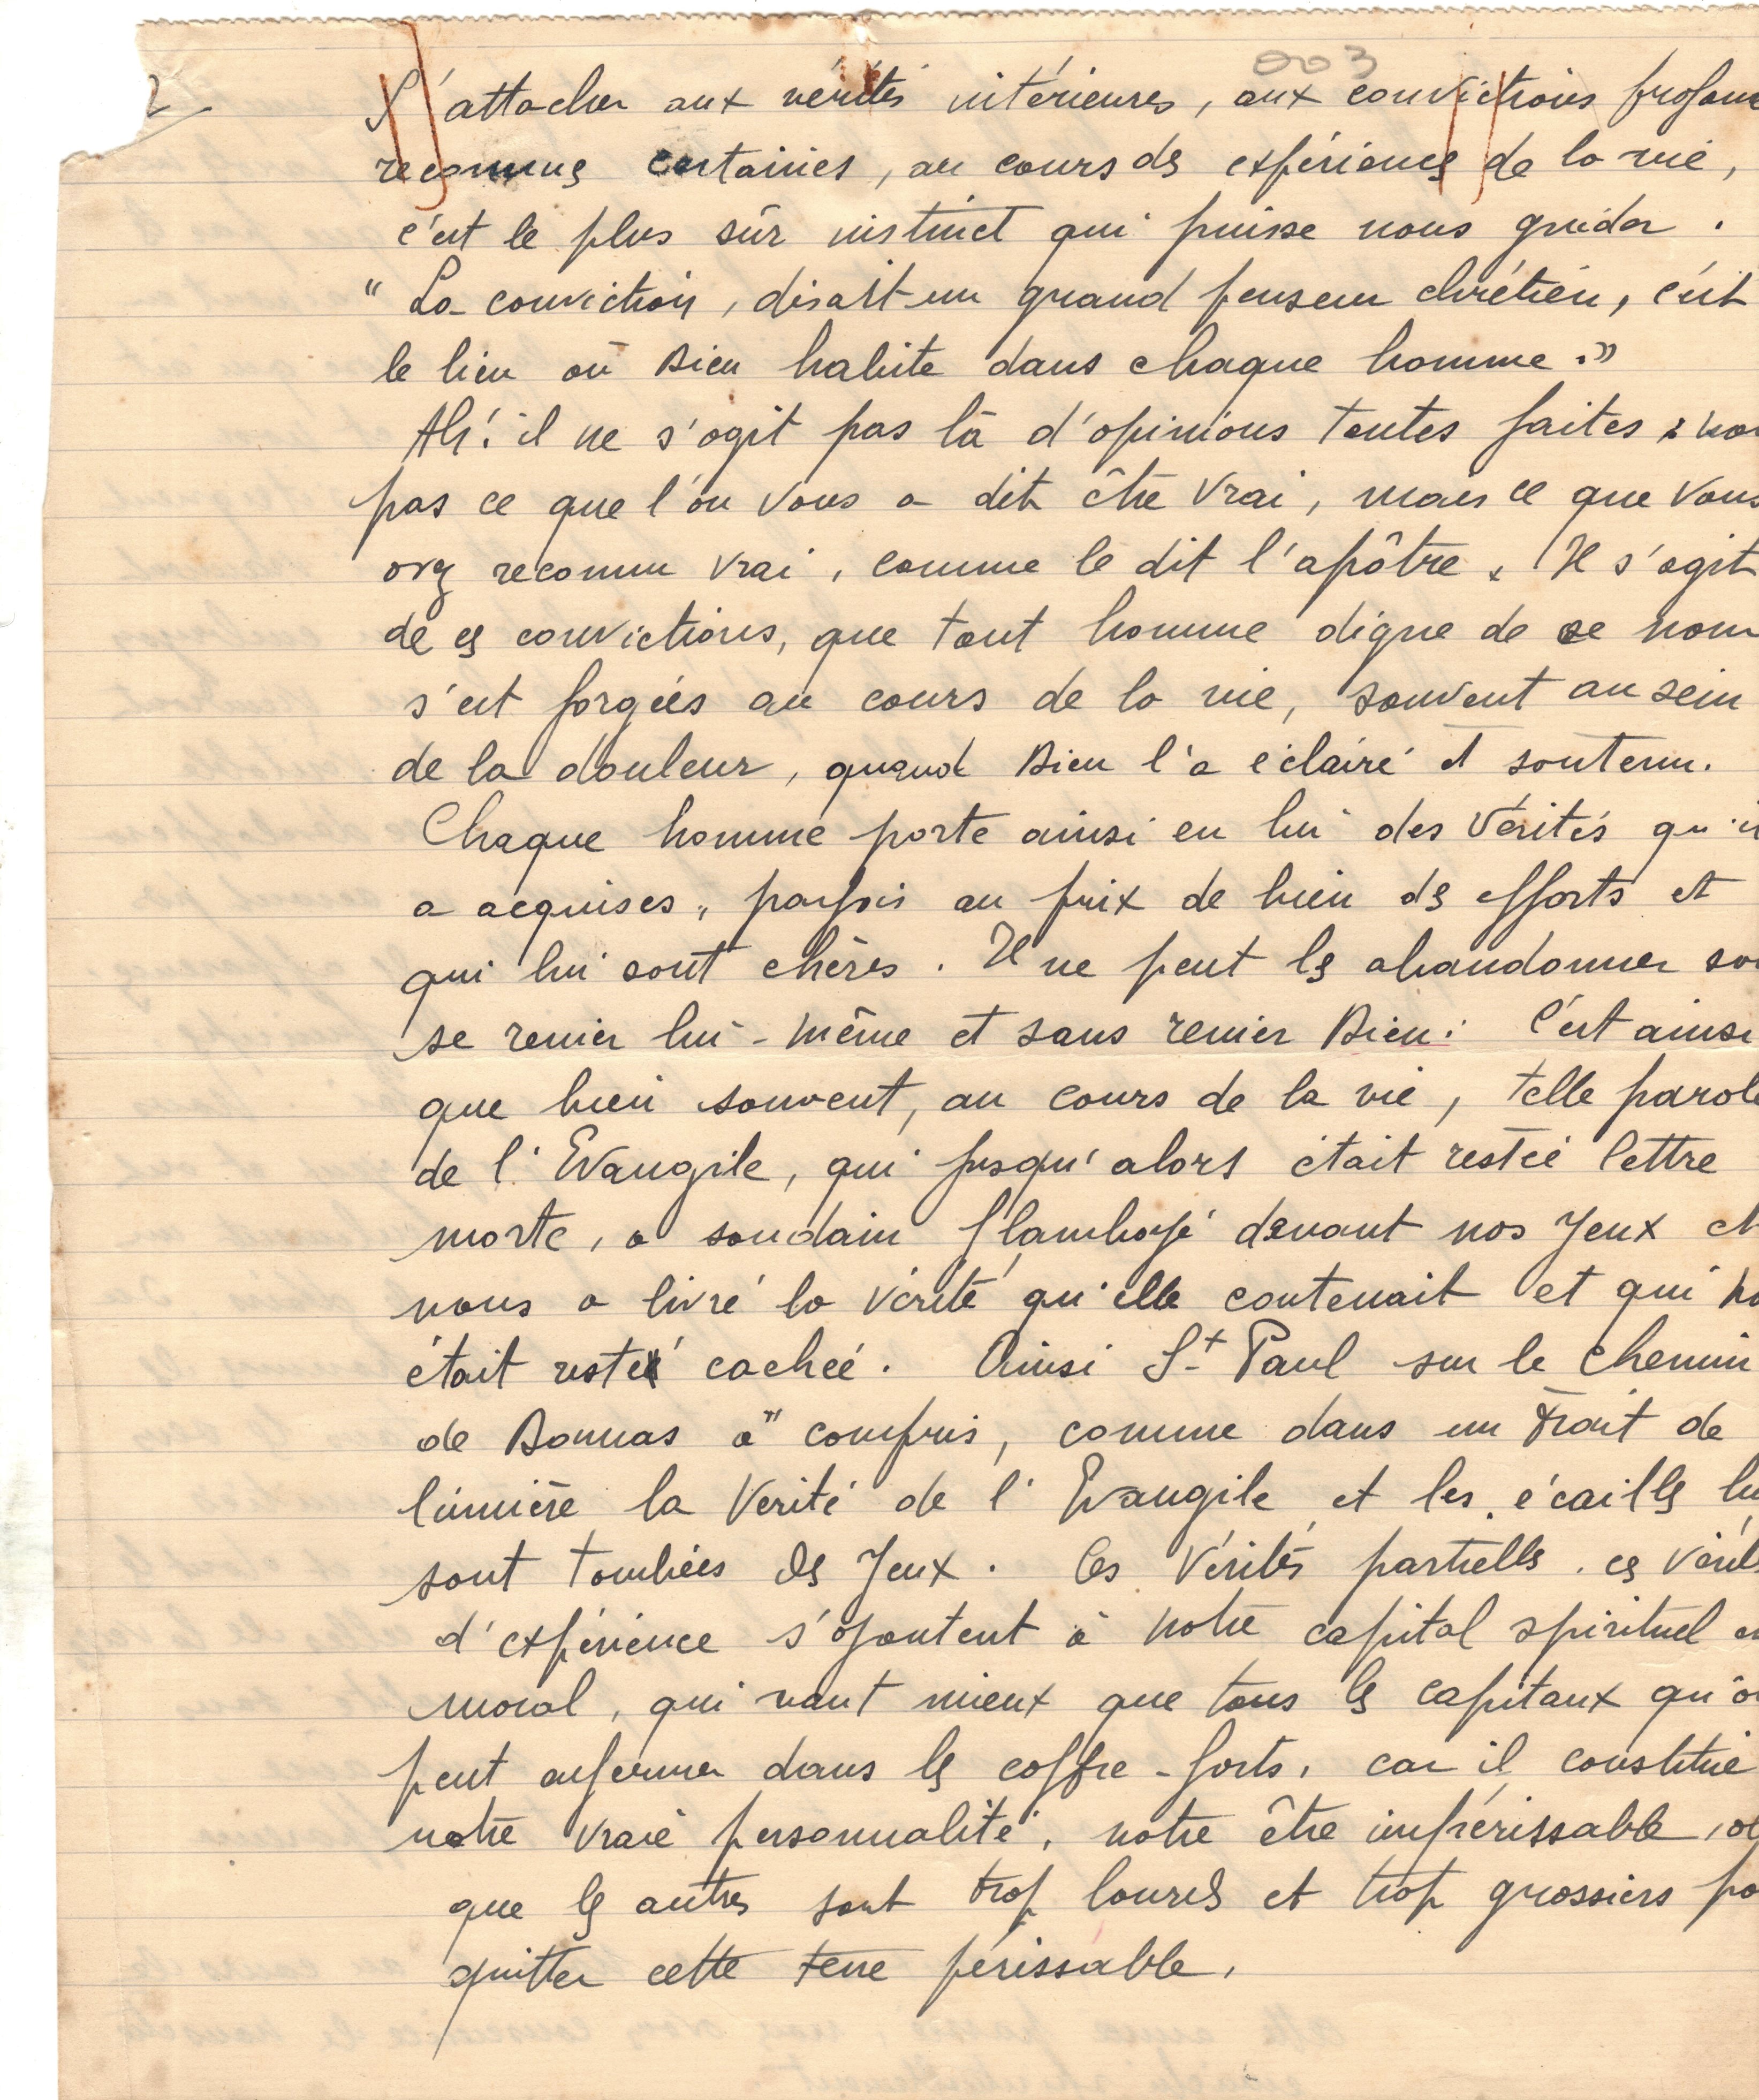 003
2
S'attacher aux vérités intérieures, aux convictions profon
reconnues certaines, au cours des expériences de la vie,
c'est le plus sûr instinct qui puisse nous guider.
" La conviction, disait-un grand penseur chrétien, c'est
le lieu où Dieu habite dans chaque homme."
Ah! il ne s'agit pas là d'opinions toutes faites : non
pas ce que l'on vous a dit être vrai, mais ce que vous
avez reconnu vrai, comme le dit l'apôtre. Il s'agit
de ces convictions, que tout homme digne de ce nom
s'est forgées au cours de la vie, souvent au sein
de la douleur, quand Dieu l'a éclairé et soutenu.
Chaque homme porte ainsi en lui des Vérités qu'il
a acquises, parfois au prix de bien des efforts et
qui lui sont chères. Il ne peut les abandonner
se renier lui-même et sans renier Dieu. C'est ainsi
que bien souvent, au cours de la vie, telle parole
de l'Evangile, qui jusqu'alors était restée lettre
morte, a soudain flamboyé devant nos yeux et
nous a livré la vérité qu'elle contenait et qui
était resté cachée. Ainsi St Paul sur le chemin
de Damas a" compris, comme dans un trait de
lumière la Vérité de l'Evangile et les écailles lu
sont tombées des yeux. Ces Vérités partielles, ces vérités
d'expérience s'ajoutent à notre capital spirituel et
moral, qui vaut mieux que tous les capitaux qu'on
peut enfermer dans les coffre-forts, car il constitue
notre vraie personnalité, notre être impérissable,
que les autres sont trop lourds et trop grossiers po
quitter cette terre périssable.